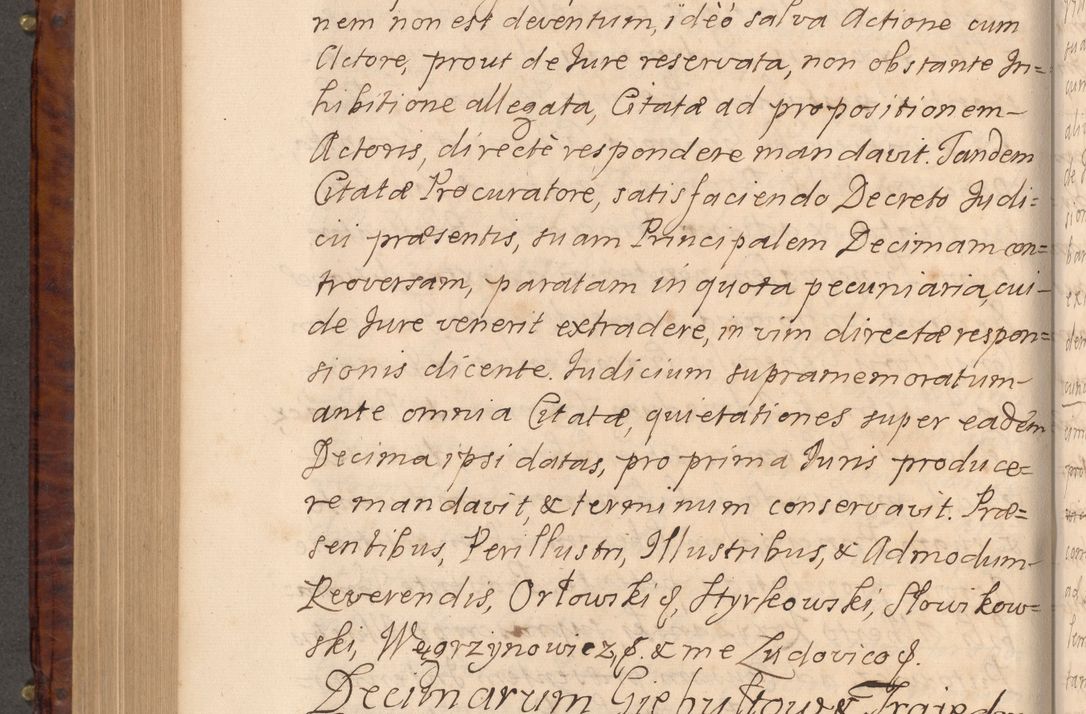 nem non est deventum, ideò salva Actione cum
Actore, prout de Iure reservata, non obstante In=
hibitione allegata, Citatæ ad propositionem
Actoris, directè respondere mandavit. Tandem
Citatæ Procuratore, satisfaciendo Decreto Iudi=
cii præsentis, suam Principalem Decimam con=
troversam, paratam in quota pecuniaria, cui
de Iure venerit extradere, in vim directæ respon=
sionis dicente. Iudicium supramemoratum
ante omnia Citatæ, quietationes super eadem
Decima ipsi datas, pro prima Iuris produce=
re mandavit, & terminum conservavit. Præ=
sentibus, Perillustri, Illustribus, & Admodum
Reverendis, Orłowski, Styrkowski, Słowikow=
ski, Węgrzynowicz, & me Ludovico
Decimarum